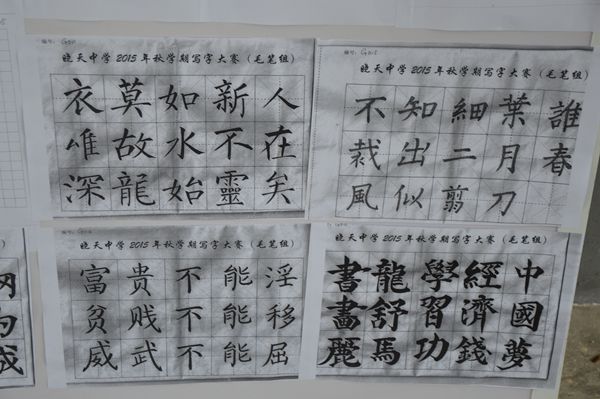 晓天中学2015年秋学期写字大赛（毛笔组）
衣莫如新人
故水不在
深龍始靈矣
晓天中学2015年秋学期写字大赛（毛笔组）
不知細葉誰
裁出二月春
風似翦刀
晓天中学2015年秋学期写字大赛（毛笔组）
富贵不能淫
贫贱不能移
威武不能屈
晓天中学2015年秋学期写字大赛（毛笔组）
書龍學經中
畫舒習濟國
麗馬功錢夢